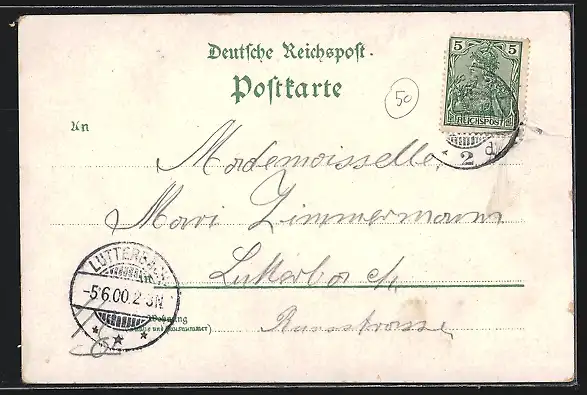 Deutsche Reichspost.
Postkarte
5 5
REICHSPOST
50
An
2 d
Mademoisselle
Mari Zimmermann
Lutterbach
LUTTERBACH
-5.6.00.2-3N
Wohnung
(Straße und Hausnummer)